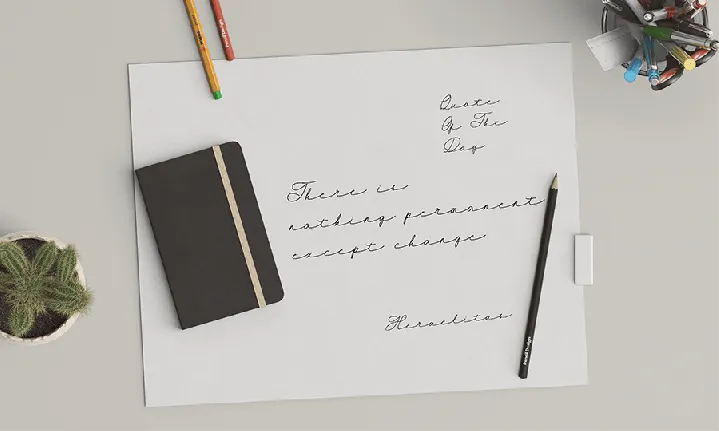 Quote
Of The
Day
There is
nothing permanent
except change
Heraclitus